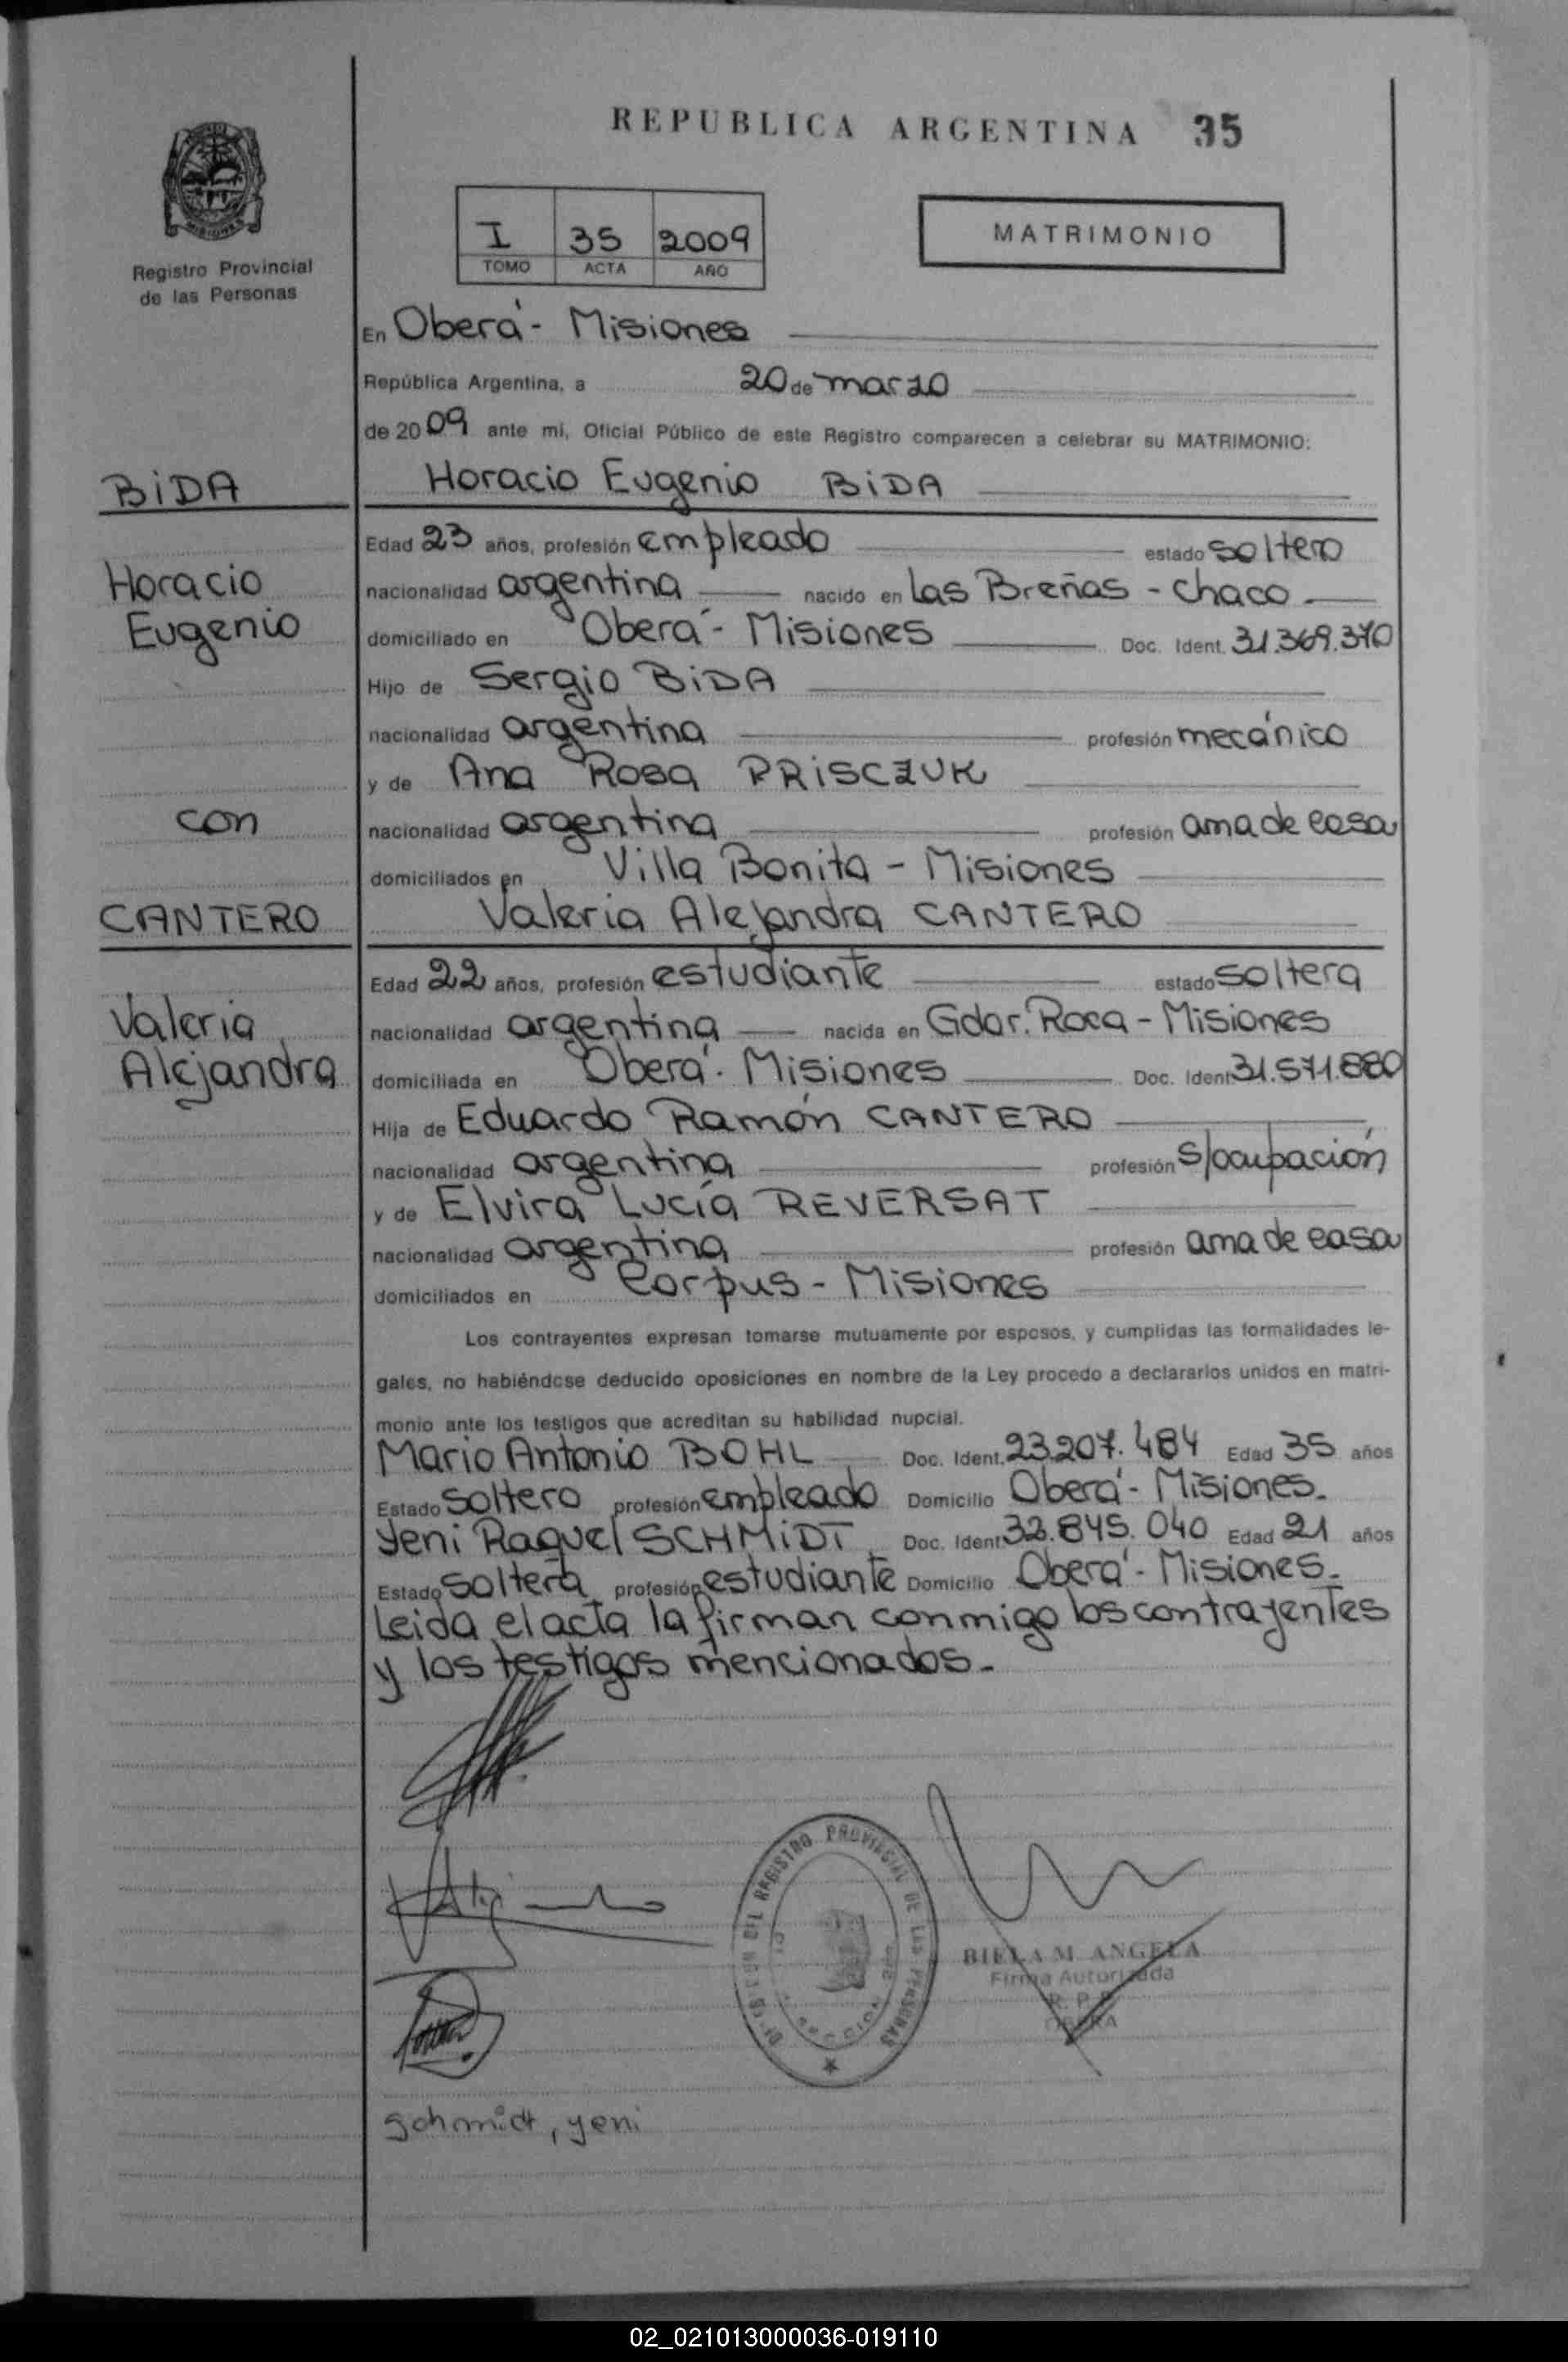 REPUBLICA ARGENTINA 35
I 35 2009
TOMO ACTA AÑO
MATRIMONIO
MISIONES
Registro Provincial
de las Personas
En Oberá - Misiones
República Argentina, a 20 de marzo
de 2009 ante mi, Oficial Público de este Registro comparecen a celebrar su MATRIMONIO:
BiDA
Horacio Eugenio BiDA
Edad 23 años, profesión empleado estado soltero
Horacio
nacionalidad argentina nacido en Las Breñas - Chaco.
Eugenio
domiciliado en Oberá - Misiones Doc. Ident. 31.369.370
Hijo de Sergio BiDA
nacionalidad argentina profesión mecánico
y de Ana Rosa PRiSCZUK
con
nacionalidad argentina profesión ama de casa
domiciliados en Villa Bonita - Misiones
CANTERO
Valeria Alejandra CANTERO
Edad 22 años, profesión estudiante estado soltera
Valeria
nacionalidad argentina nacida en Gdor. Roca - Misiones
Alejandra
domiciliada en Oberá - Misiones Doc. Ident 31.571.880
Hija de Eduardo Ramón CANTERO
nacionalidad argentina profesión s/ocupación
y de Elvira Lucía REVERSAT
nacionalidad argentina profesión ama de casa
domiciliados en Corpus - Misiones
Los contrayentes expresan tomarse mutuamente por esposos, y cumplidas las formalidades le-
gales, no habiéndose deducido oposiciones en nombre de la Ley procedo a declararlos unidos en matri-
monio ante los testigos que acreditan su habilidad nupcial.
Mario Antonio BOHL Doc. Ident. 23.207.484 Edad 35 años
Estado soltero profesión empleado Domicilio Oberá - Misiones.
Yeni Raquel SCHMiDT Doc. Ident 33.845.040 Edad 21 años
Estado soltera profesión estudiante Domicilio Oberá - Misiones.
Leida el acta la firman conmigo los contrayentes
y los testigos mencionados.
DIRECCION DEL REGISTRO PROVINCIAL DE LAS PERSONAS
BIELA M. ANGELA
Firma Autorizada
R. P. P.
OBERA
Schmidt, yeni
02_021013000036-019110